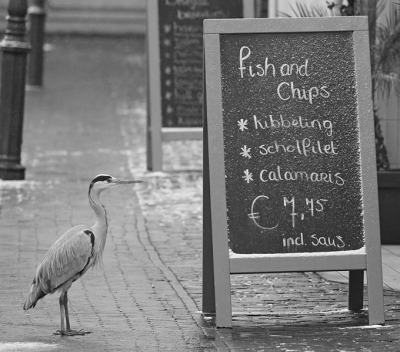 Fish and
Chips
* kibbeling
* scholfilet
* calamaris
€ 7,75
incl. saus.